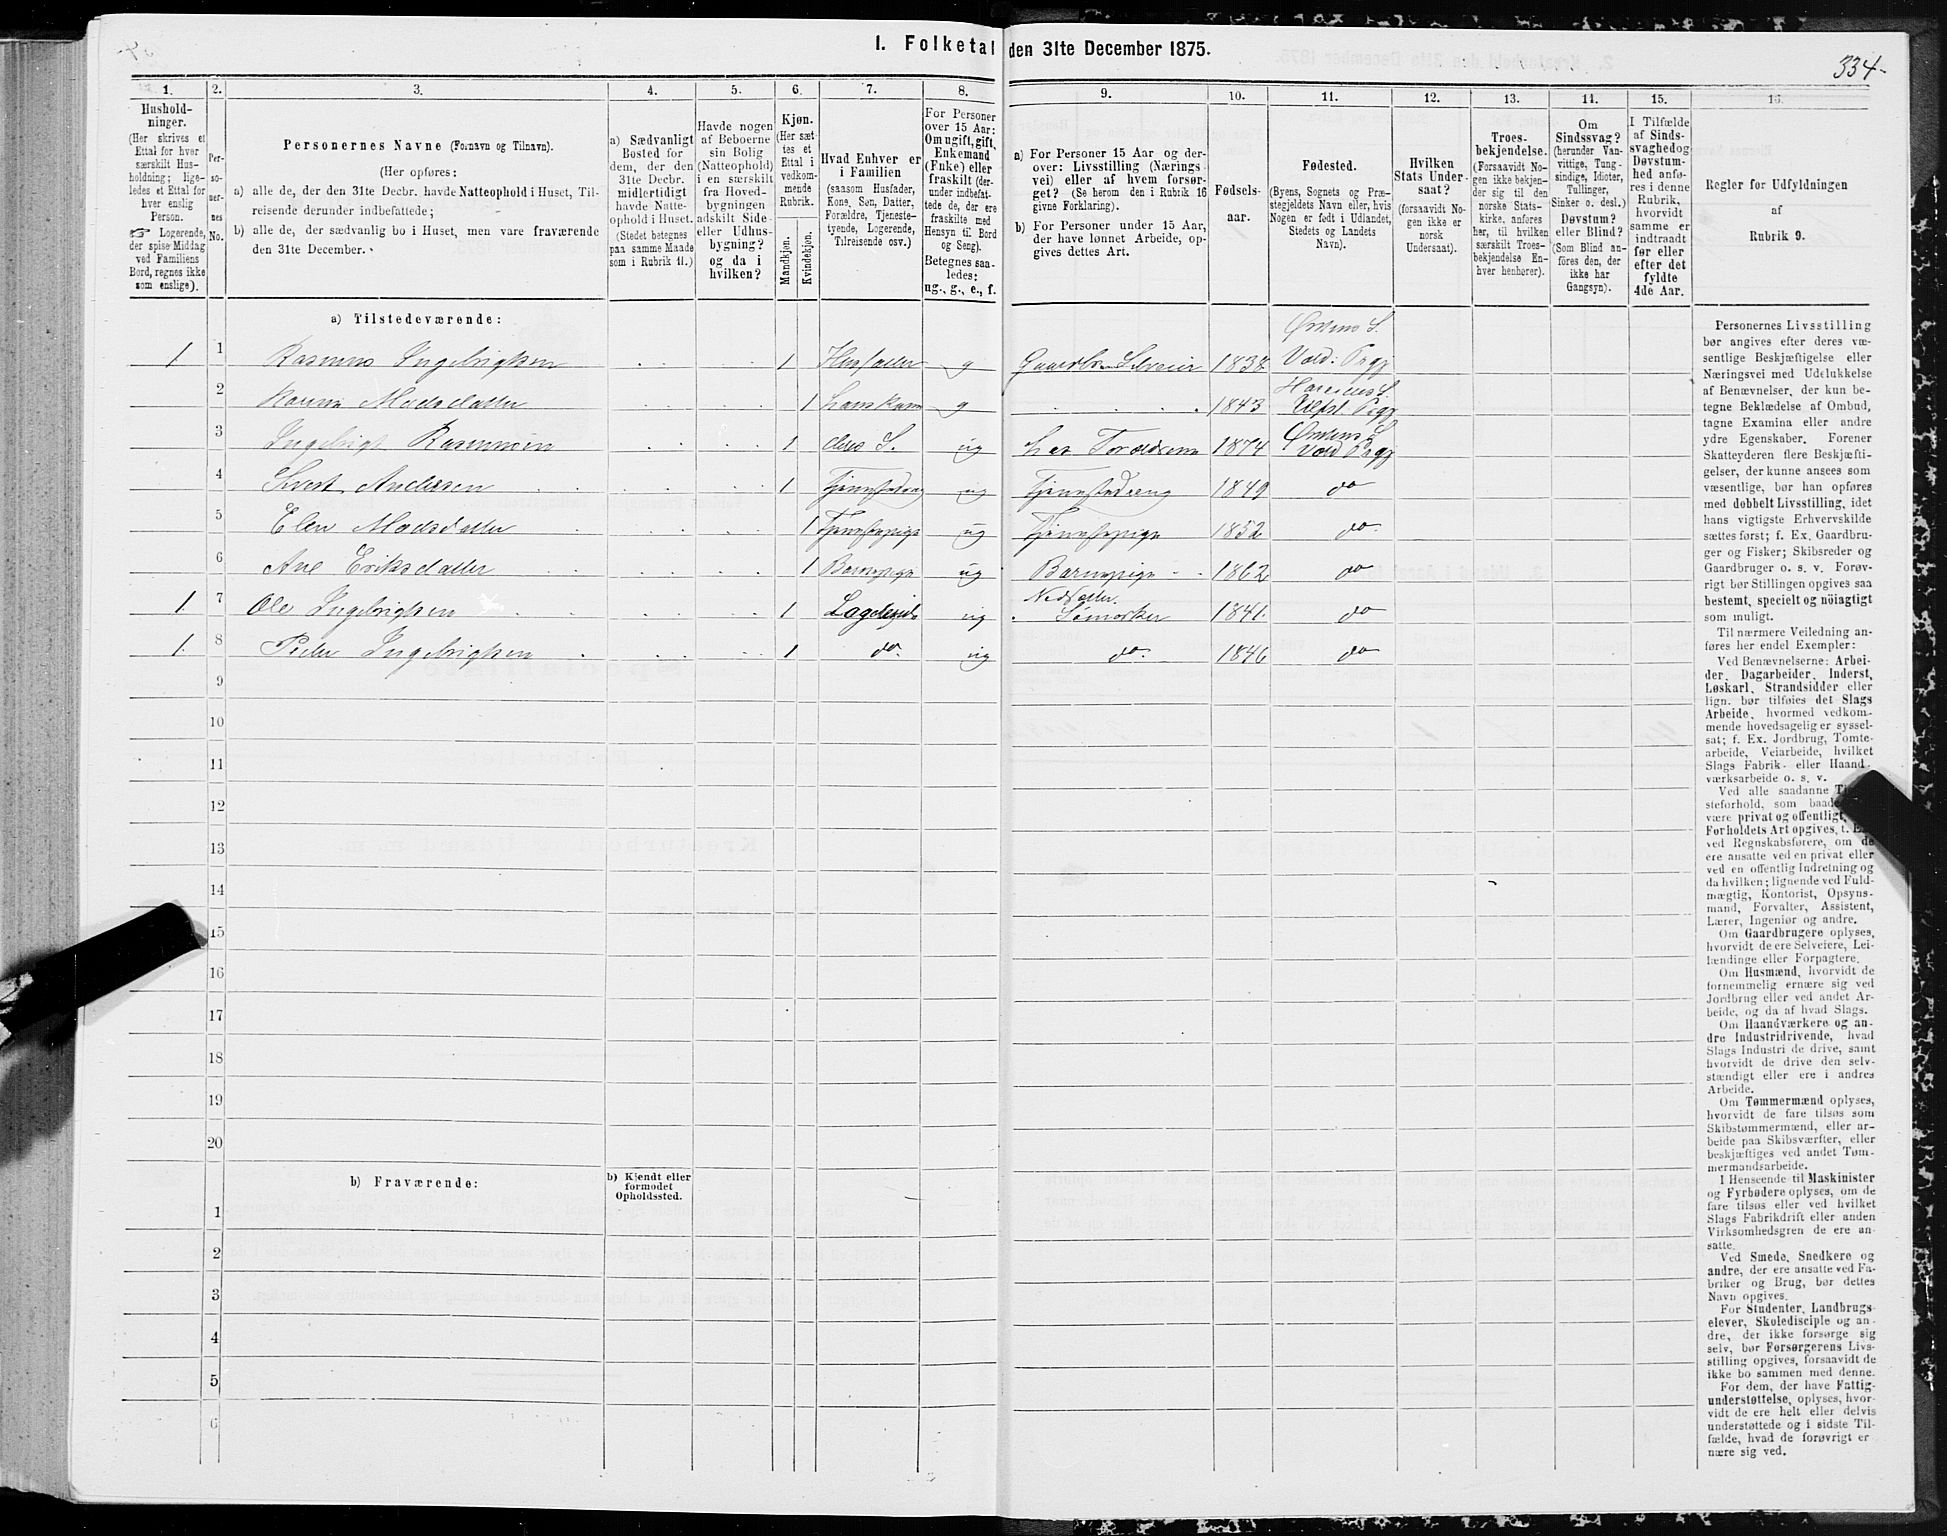 1. Folketal den 31te December 1875.
334-
1.
2.
3.
4.
5.
6.
7.
8.
9.
10.
11.
12.
13.
14.
15.
16.
Hushold-
ninger.
(Her skrives et
Ettal for hver
særskilt Hus-
holdning; lige-
ledes et Ettal for
hver enslig
Person.
☞ Logerende,
der spise Middag
ved Familiens
Bord, regnes ikke
som enslige).
Per-
so-
ner-
nes
No.
Personernes Navne (Fornavn og Tilnavn).
(Her opføres:
a) alle de, der den 31te Decbr. havde Natteophold i Huset, Til-
reisende derunder indbefattede;
b) alle de, der sædvanlig bo i Huset, men vare fraværende
den 31te December.
a) Sædvanligt
Bosted for
dem, der den
31te Decbr.
midlertidigt
havde Natte-
ophold i Huset.
(Stedet betegnes
paa samme Maade
som i Rubrik 11.)
Havde nogen
af Beboerne
sin Bolig
(Natteophold)
i en særskilt
fra Hoved-
bygningen
adskilt Side-
eller Udhus-
bygning?
og da i
hvilken?
Kjøn.
(Her sæt-
tes et
Ettal i
vedkom-
mende
Rubrik.
Mandkjøn.
Kvindekjøn.
Hvad Enhver er
i Familien
(saasom Husfader,
Kone, Søn, Datter,
Forældre, Tjeneste-
tyende, Logerende,
Tilreisende osv.)
For Personer
over 15 Aar:
Om ugift, gift,
Enkemand
(Enke) eller
fraskilt (der-
under indbefat-
tede de, der ere
fraskilte med
Hensyn til Bord
og Seng).
Betegnes saa-
ledes:
ug., g., e., f.
a) For Personer 15 Aar og der-
over: Livsstilling (Nærings-
vei) eller af hvem forsør-
get? (Se herom den i Rubrik 16
givne Forklaring).
b) For Personer under 15 Aar,
der have lønnet Arbeide, op-
gives dettes Art.
Fødsels-
aar.
Fødested.
(Byens, Sognets og Præ-
stegjeldets Navn eller, hvis
Nogen er født i Udlandet,
Stedets og Landets
Navn).
Hvilken
Stats Under-
saat?
(forsaavidt No-
gen ikke er
norsk
Undersaat).
Troes-
bekjendelse.
(Forsaavidt No-
gen ikke bekjen-
der sig til den
norske Stats-
kirke, anføres
her, til hvilken
særskilt Troes-
bekjendelse En-
hver henhører).
Om
Sindssvag?
(herunder Van-
vittige, Tung-
sindige, Idioter,
Tullinger,
Sinker o. desl.)
Døvstum?
eller Blind?
(Som Blind an-
føres den, der
ikke har
Gangsyn).
I Tilfælde
af Sinds-
svaghed og
Døvstum-
hed anfø-
res i denne
Rubrik,
hvorvidt
samme er
indtraadt
før eller
efter det
fyldte
4de Aar.
Regler for Udfyldningen
af
Rubrik 9.
a) Tilstedeværende:
1 1 Rasmus Ingebrigtsen 1 Husfader g Gaardbr. Selveier 1838 Ørstens S. Vold: Prgj
2 Karen Madsdatter 1 hans Kone g 1843 Ulfst. Prgj
3 Ingebrigt Rasmussen 1 deres S. ug hos Forældrene 1874 Ørstens S. Vold Prgj
4 Sivert Andersen 1 Tjenstedreng ug Tjenstedreng 1849 do
5 Elen Madsdatter 1 Tjenstepige ug Tjenstepige 1852 do.
6 Ane Eriksdatter 1 Barnepige ug Barnepige 1862 do
1. 7 Ole Ingebrigtsen 1 ug 1841. do
1. 8 Peder Ingebrigtsen 1 do. ug do. 1846 do
9
10
11
12
13
14
15
16
17
18
19
20
b) Fraværende:
b) Kjendt eller
formodet
Opholdssted.
1
2
3
4
5
6
Personernes Livsstilling
bør angives efter deres væ-
sentlige Beskjæftigelse eller
Næringsvei med Udelukkelse
af Benævnelser, der kun be-
tegne Beklædelse af Ombud,
tagne Examina eller andre
ydre Egenskaber. Forener
Skatteyderen flere Beskjæfti-
gelser, der kunne ansees som
væsentlige, bør han opføres
med dobbelt Livsstilling, idet
hans vigtigste Erhvervskilde
sættes først; f. Ex. Gaardbru-
ger og Fisker; Skibsreder og
Gaardbruger o. s. v. Forøv-
rigt bør Stillingen opgives saa
bestemt, specielt og nöiagtigt
som muligt.
Til nærmere Veiledning an-
føres her endel Exempler:
Ved Benævnelserne: Arbei-
der, Dagarbeider, Inderst,
Løskarl, Strandsidder eller
lign. bør tilføies det Slags
Arbeide, hvormed vedkom-
mende hovedsagelig er syssel-
sat; f. Ex. Jordbrug, Tomte-
arbeide, Veiarbeide, hvilket
Slags Fabrik- eller Haand-
værksarbeide o. s. v.
Ved alle saadanne
steforhold, som
være privat og offentligt,
Forholdets Art opgives, t. Ex.
ved Regnskabsførere, om de
ere ansatte ved en privat eller
ved en offentlig Indretning og
da hvilken; lignende ved Fuld-
mægtig, Kontorist, Opsyns-
mand, Forvalter, Assistent,
Lærer, Ingeniør og andre.
Om Gaardbrugere oplyses,
hvorvidt de ere Selveiere, Lei-
lændinge eller Forpagtere.
Om Husmænd, hvorvidt de
fornemmelig ernære sig ved
Jordbrug eller ved andet Ar-
beide, og da af hvad Slags.
Om Haandværkere og an-
dre Industridrivende, hvad
Slags Industri de drive, samt
hvorvidt de drive den selv-
stændigt eller ere i andres
Arbeide.
Om Tømmermænd oplyses,
hvorvidt de fare tilsøs som
Skibstømmermænd, eller ar-
beide paa Skibsværfter, eller
beskjæftiges ved andet Tøm-
mermandsarbeide.
I Henseende til Maskinister
og Fyrbødere oplyses, om de
fare tilsøs eller ved hvilket
Slags Fabrikdrift eller anden
Virksomhedsgren de ere an-
satte.
Ved Smede, Snedkere og
andre, der ere ansatte ved Fa-
briker og Brug, bør dettes
Navn opgives.
For Studenter, Landbrugs-
elever, Skoledisciple og an-
dre, der ikke forsørge sig
selv, bør Forsørgerens Livs-
stilling opgives, forsaavidt de
ikke bo sammen med denne.
For dem, der have Fattig-
understøttelse, oplyses, hvor-
vidt de ere helt eller delvis
understøttede og i sidste Til-
fælde, hvad de forøvrigt er
nære sig ved.